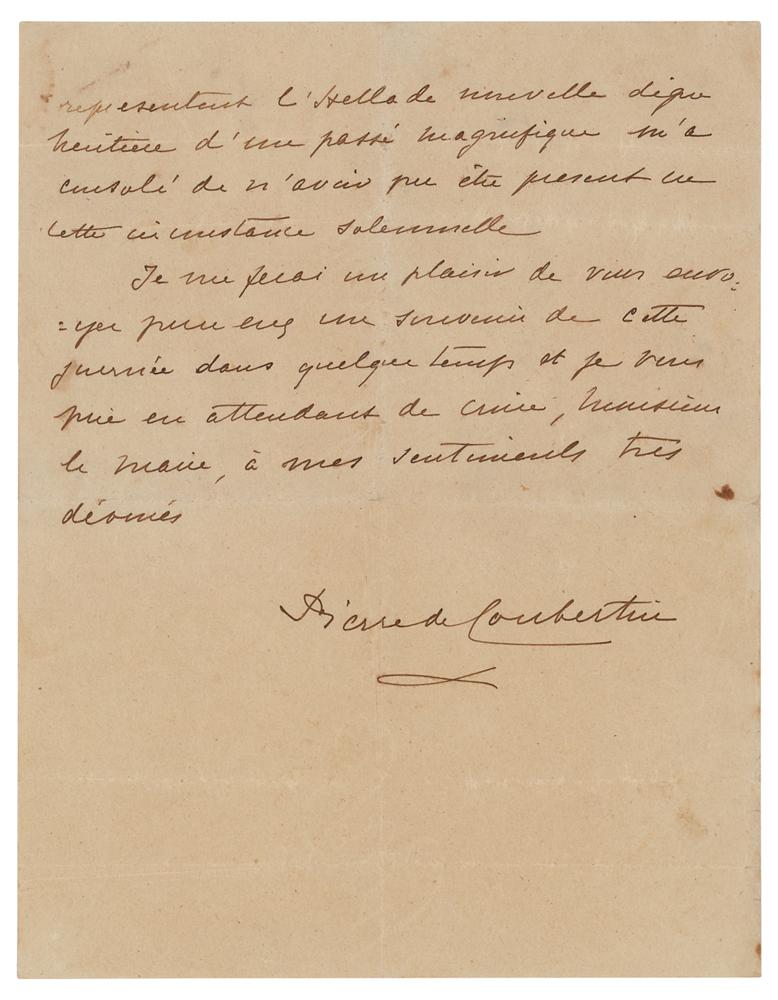 représentant l'Hellade nouvelle digne
héritière d'un passé magnifique m'a
consolé de n'avoir pu être présent en
cette circonstance solennelle
Je me ferai un plaisir de vous envo-
=yer un souvenir de cette
journée dans quelque temps et je vous
prie en attendant de croire, Monsieur
le Maire, à mes sentiments très
dévoués
Pierre de Coubertin